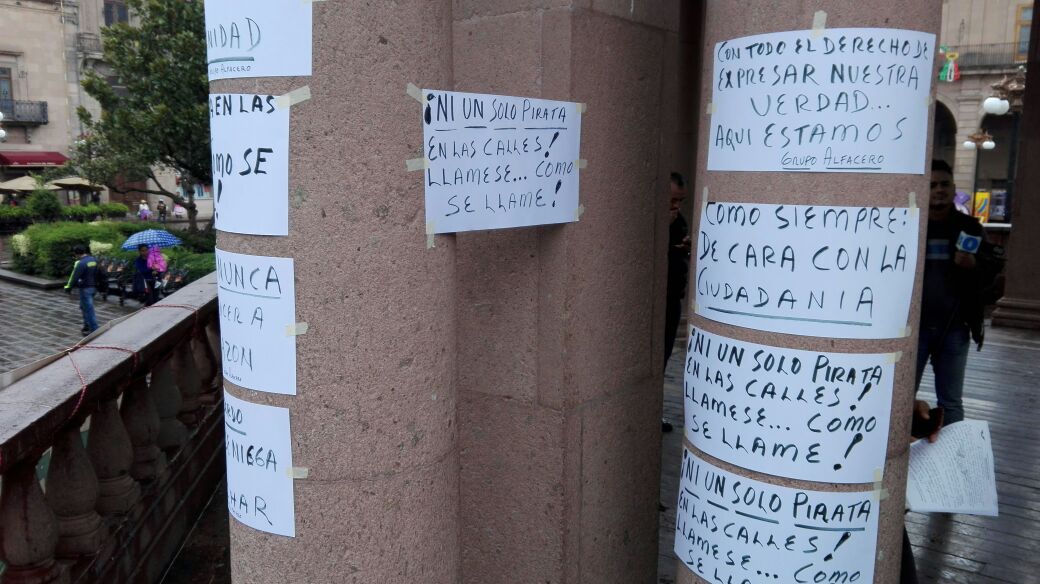 NIDAD
GRUPO ALFACERO
EN LAS
MO SE
!
NUNCA
CER A
ZON
RDO
NIEGA
HAR
¡NI UN SOLO PIRATA
EN LAS CALLES!
LLAMESE... COMO
SE LLAME!
CON TODO EL DERECHO DE
EXPRESAR NUESTRA
VERDAD...
AQUI ESTAMOS
GRUPO ALFACERO
COMO SIEMPRE:
DE CARA CON LA
CIUDADANIA
¡NI UN SOLO PIRATA
EN LAS CALLES!
LLAMESE... COMO
SE LLAME!
¡NI UN SOLO PIRATA
EN LAS CALLES!
LLAMESE... COMO
SE LLAME!